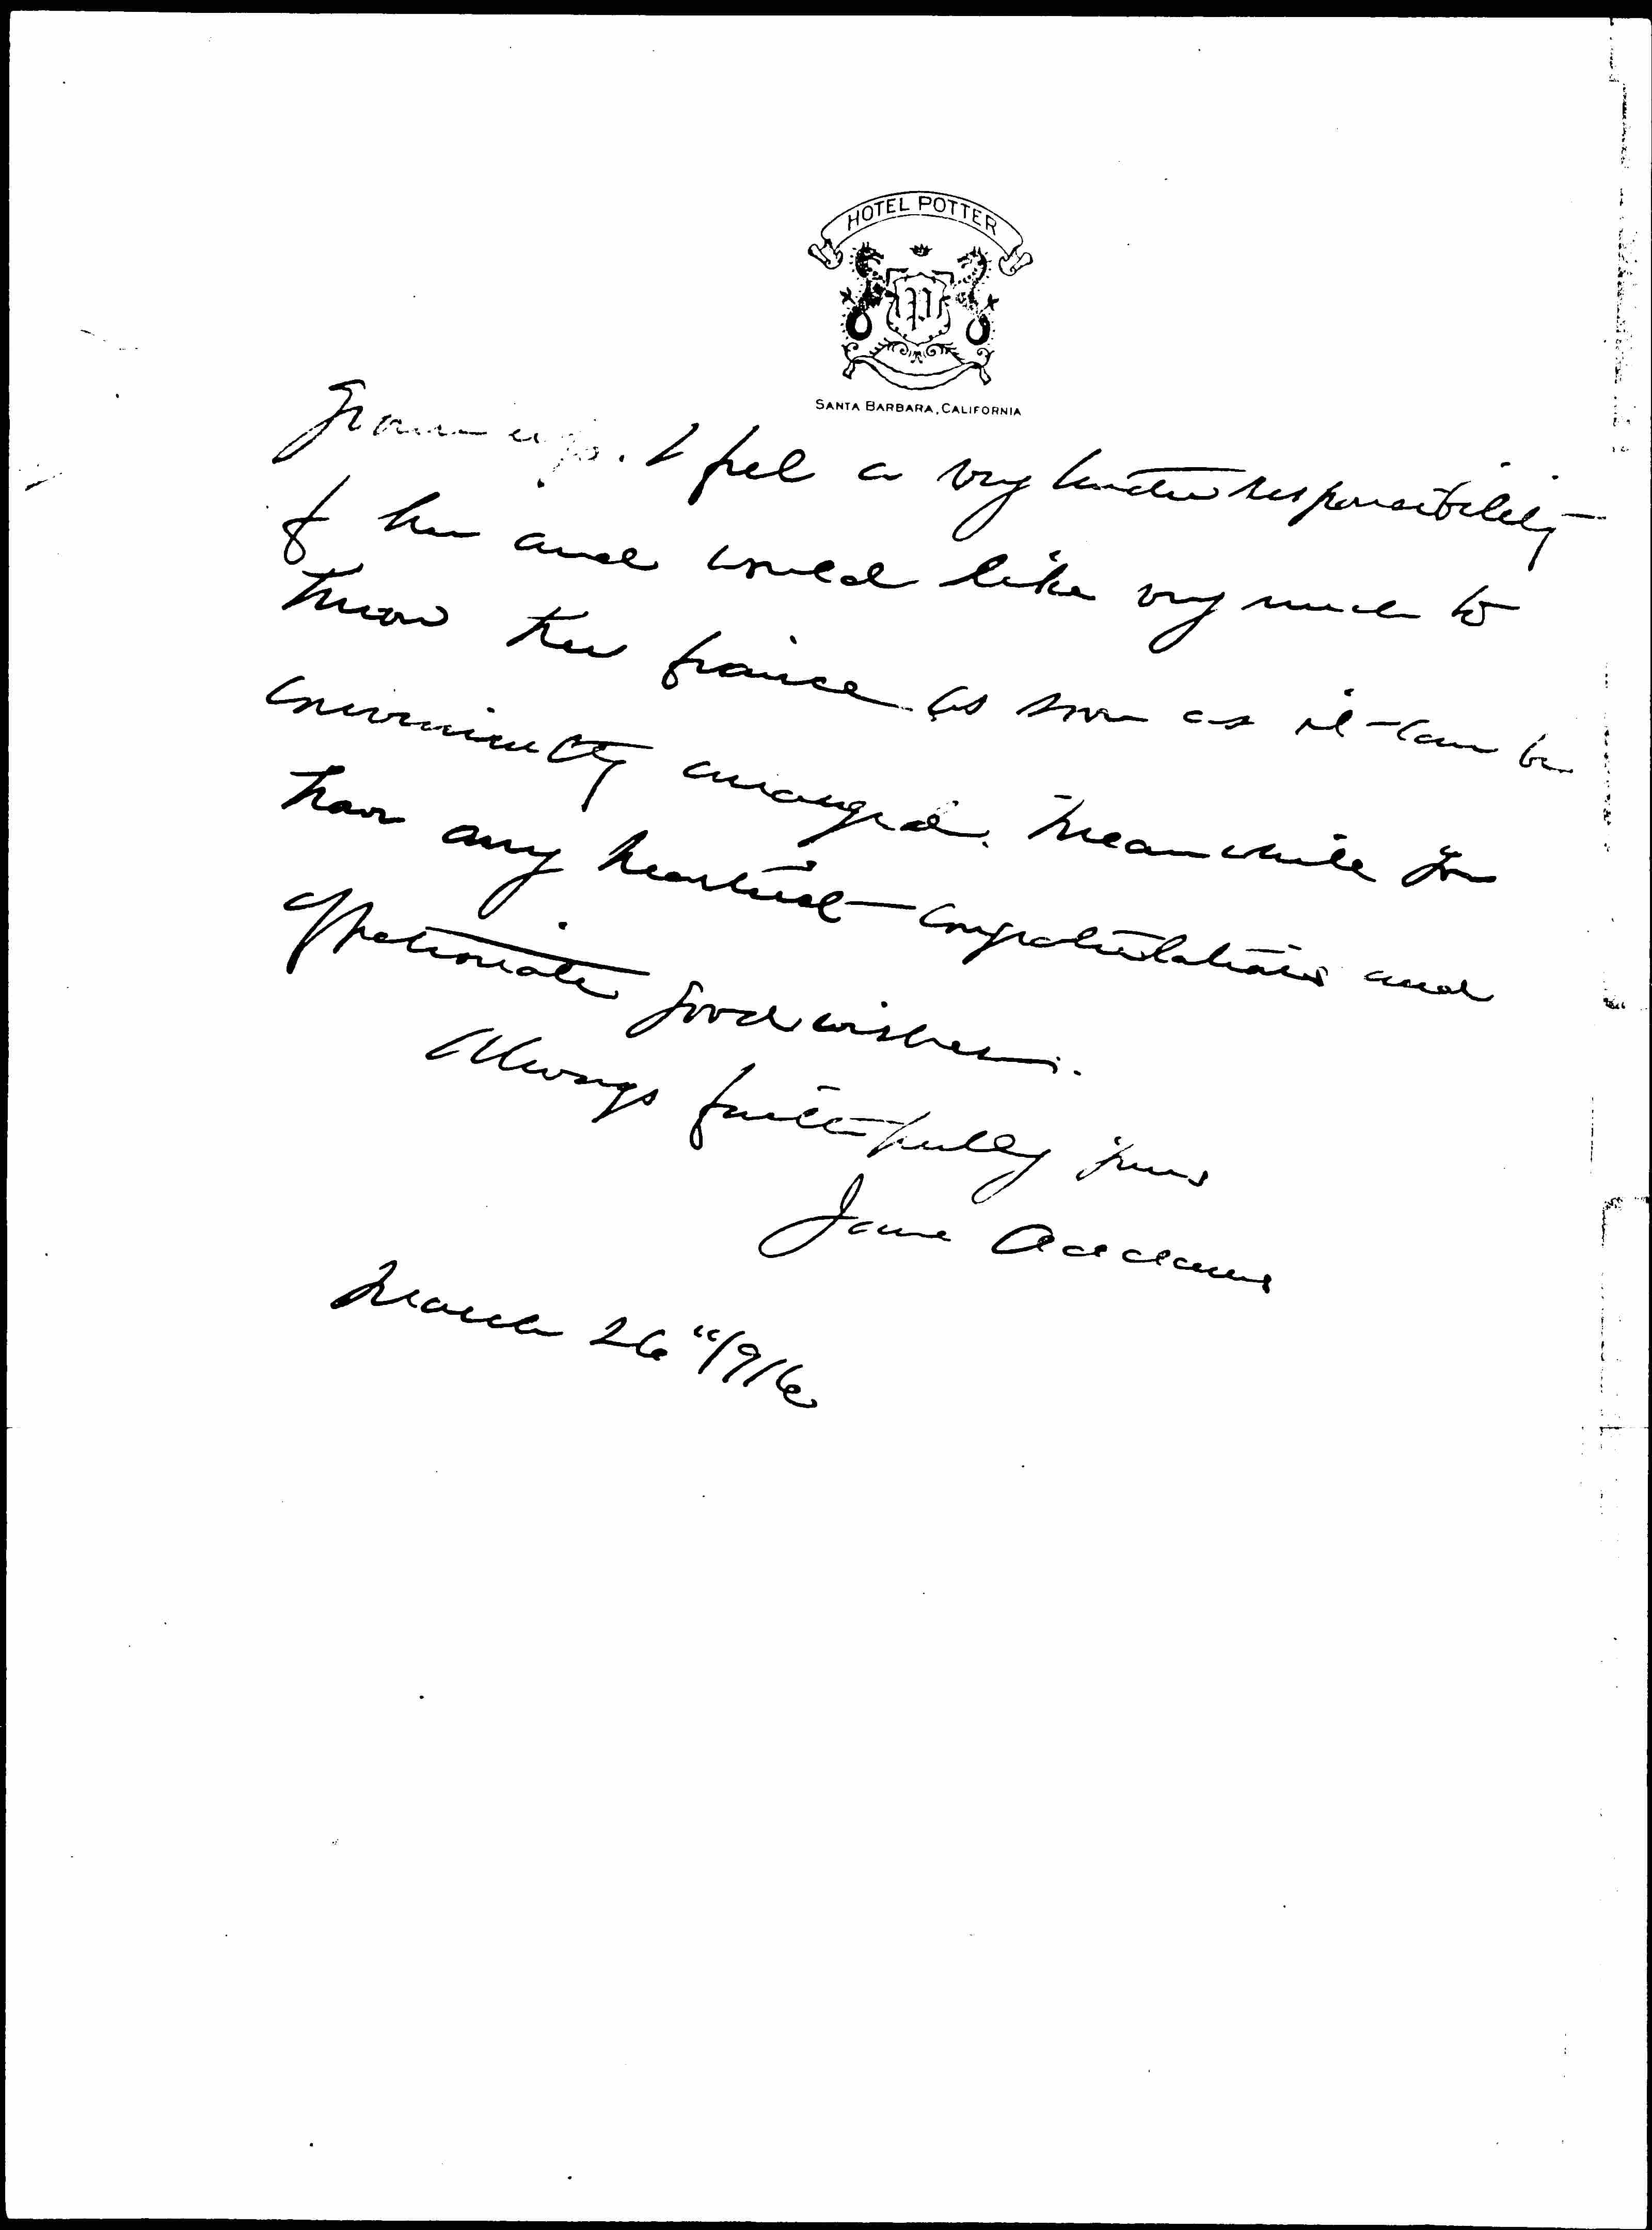 HOTEL POTTER
P
SANTA BARBARA, CALIFORNIA
Grown up. I feel a very tender responsibility
of her and would like very much to
know the fiance as soon as it can be
conveniently arranged. Meanwhile you
have my heartiest congratulations and
affectionate good wishes.
Always faithfully yours
Jane Addams
March 26" 1916